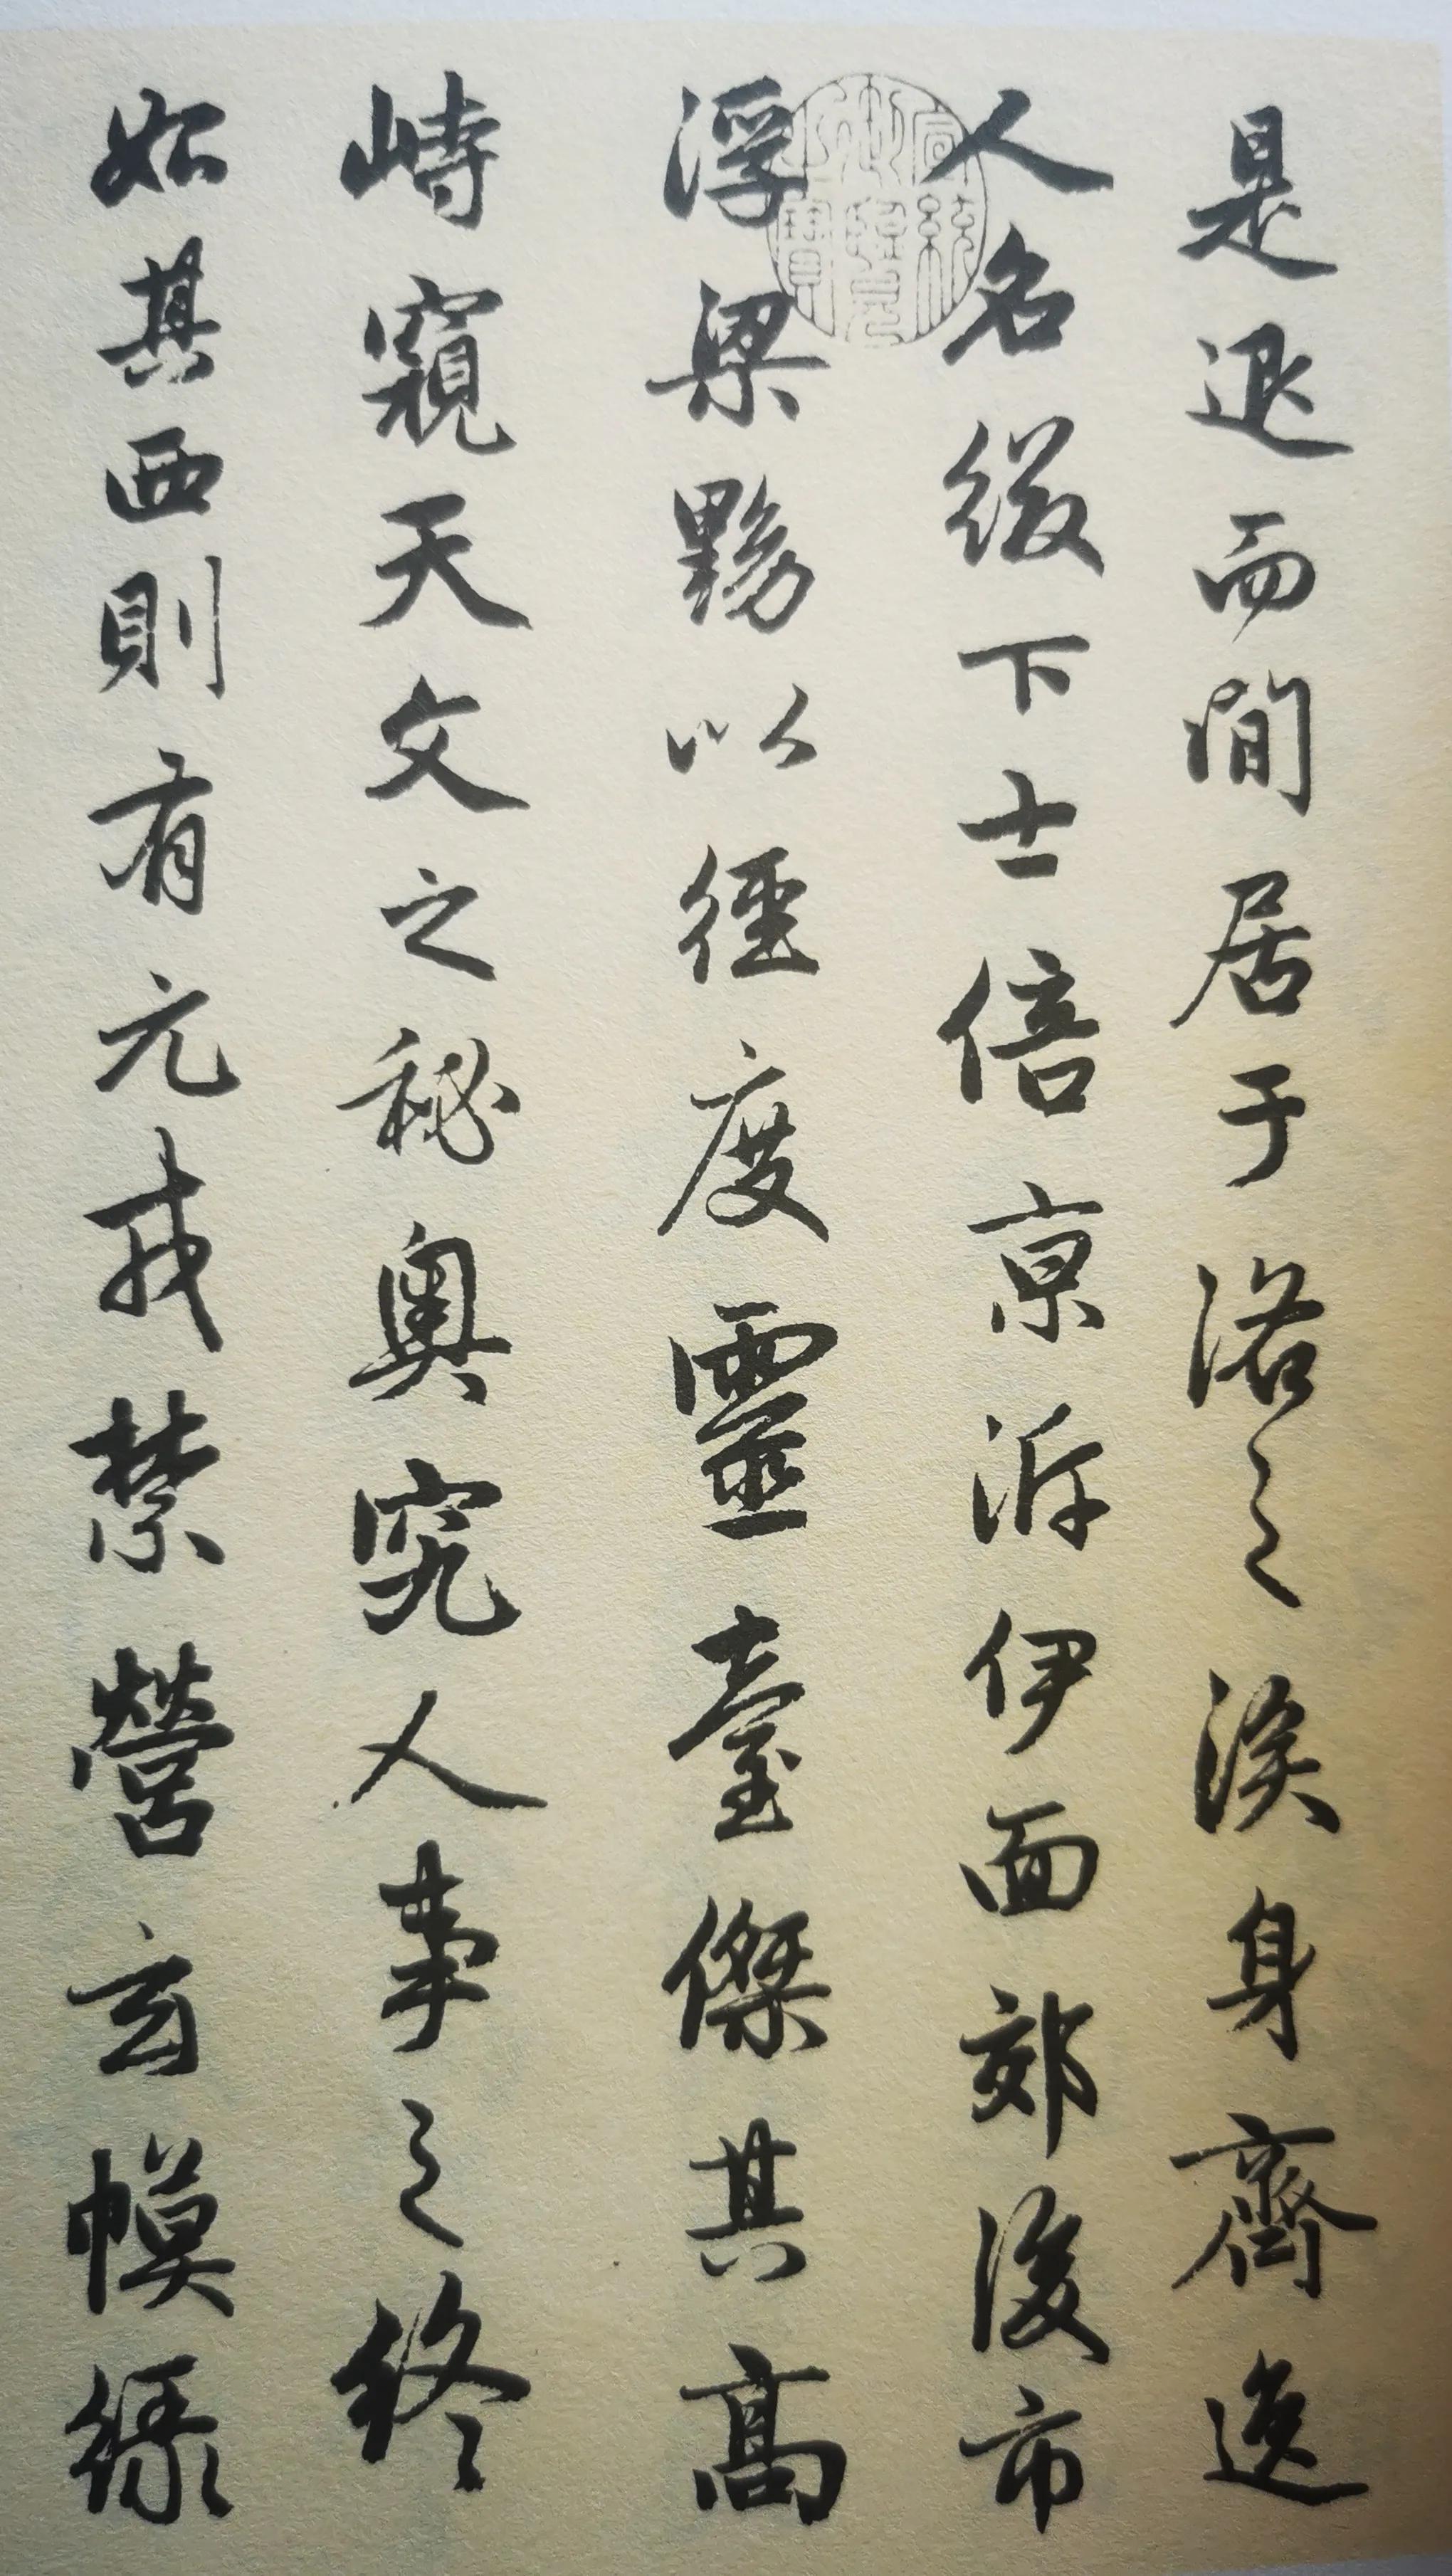 是退而閒居于洛之涘身齊逸
人名綴下士倍京泝伊面郊後市
浮梁黝以徑度靈臺傑其高
峙窺天文之秘奧究人事之終
始其西則有元戎禁營玄幙綠
宣統御覽之寶